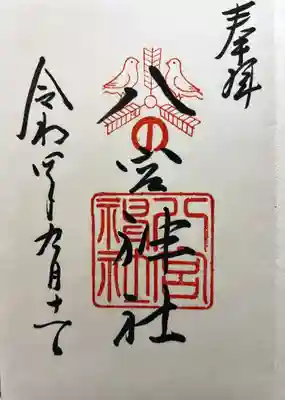 奉拝
八の宮神社
八宮神社
令和四年九月十一日